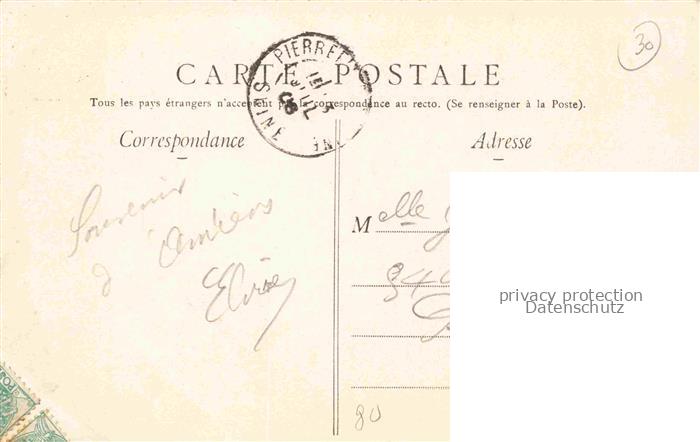 30
PIERREFITTE
SEINE
CARTE POSTALE
Tous les pays étrangers n'acceptent pas la correspondance au recto. (Se renseigner à la Poste).
Correspondance
Adresse
Souvenir
d'Amiens
Elvire
Melle
privacy protection
Datenschutz
80